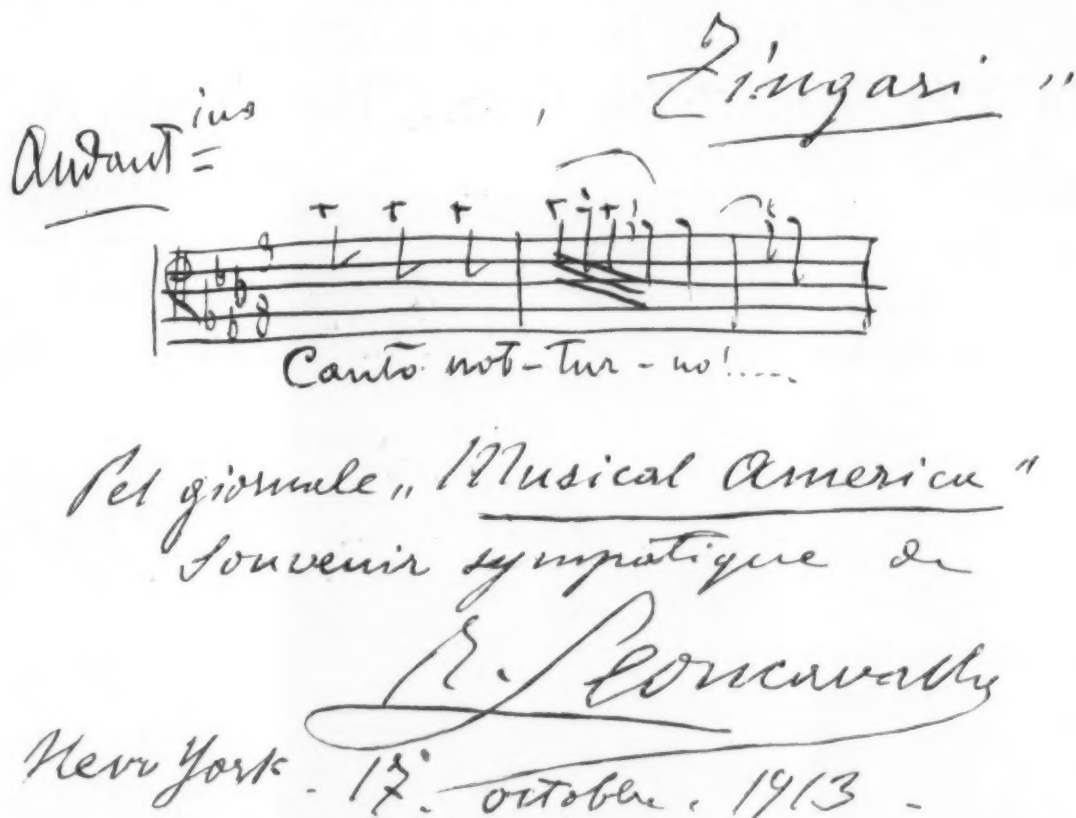 Zingari"
Andantino
Canto not-tur-no!....
Pel giornale „Musical America"
Souvenir sympatique de
R. Leoncavallo
New York. 17. octobre. 1913.